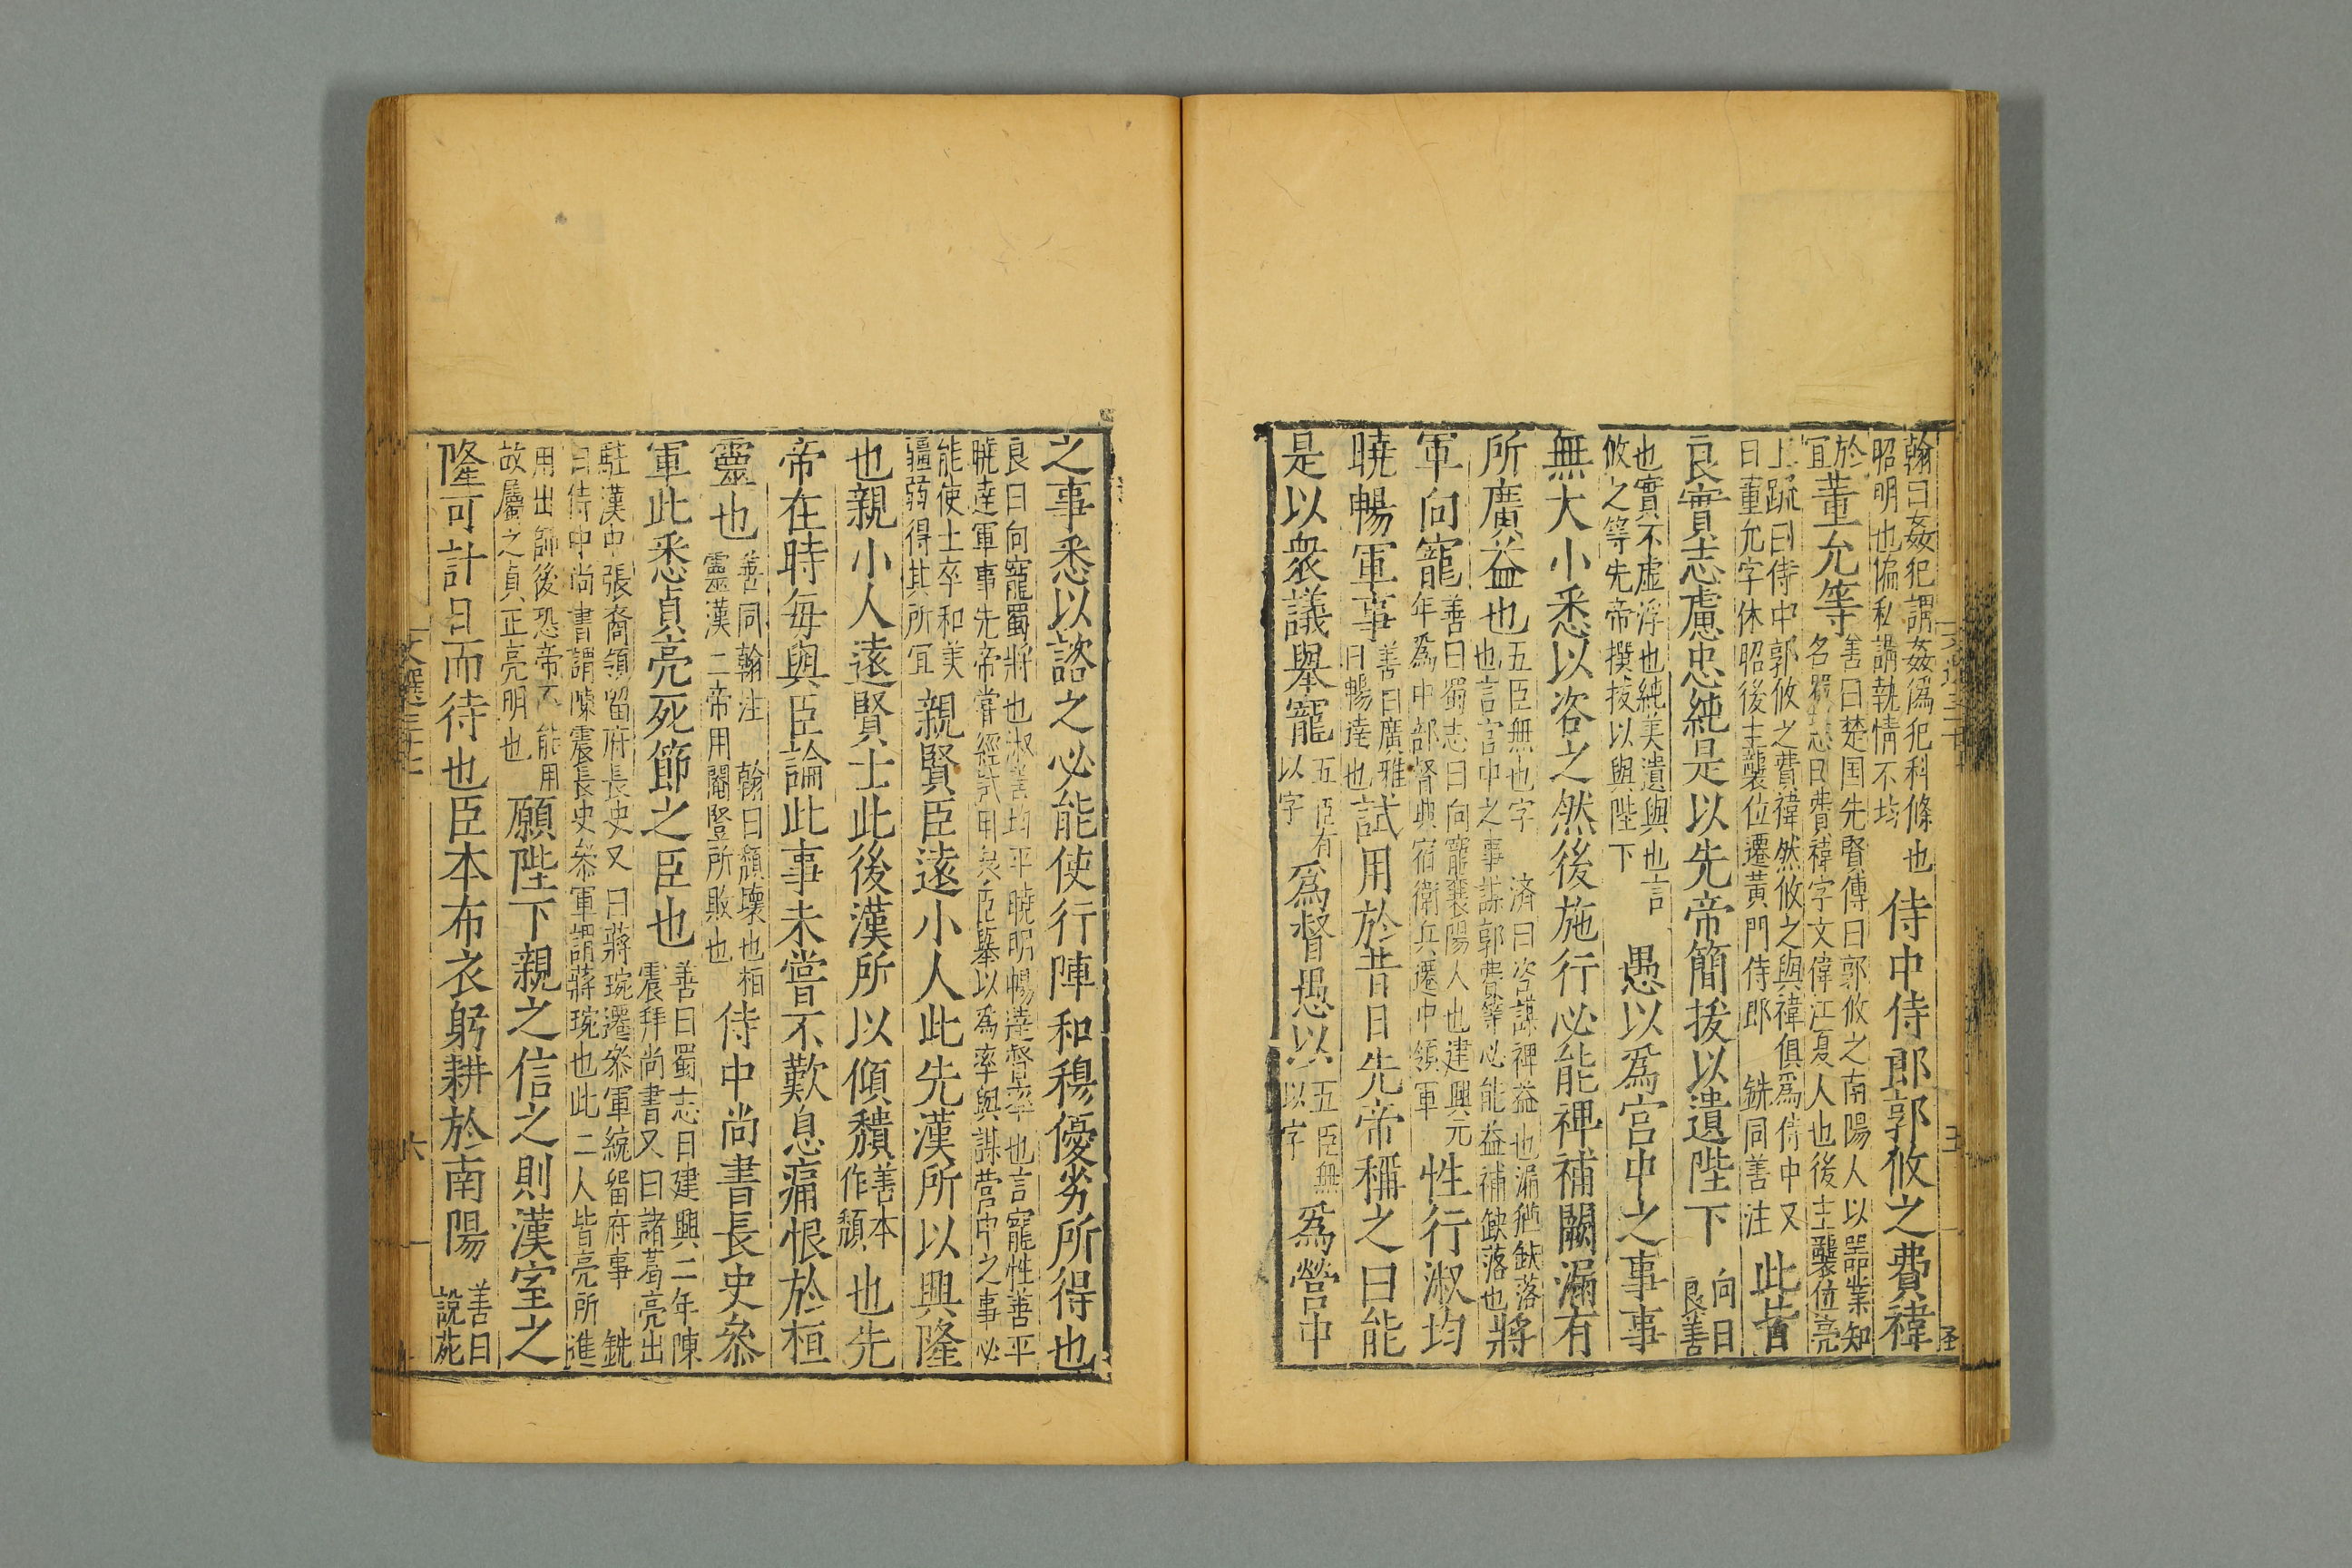 翰曰姦犯謂姦僞犯科條也
昭明也偏私謂執情不均
侍中侍郎郭攸之費禕
於
宜
董允等
善曰楚国先賢傳曰郭攸之南陽人以噐業知
名蜀志曰費禕字文偉江夏人也後主襲位亮
上疏曰侍中郭攸之費禕然攸之與禕俱爲侍中又
曰董允字休昭後主襲位遷黃門侍郎 銑同善注
此皆
良實志慮忠純是以先帝簡拔以遺陛下
向曰
良善
也實不虚浮也純美遺與也言
攸之等先帝撰拔以與陛下
愚以爲宮中之事事
無大小悉以咨之然後施行必能裨補闕漏有
所廣益也
五臣無也字 済曰咨謀裨益也漏猶缺落
也言宮中之事謀郭費等必能益補缺落也
將
軍向寵
善曰蜀志曰向寵襄陽人也建興元
年爲中部督典宿衛兵遷中領軍
性行淑均
曉暢軍事
善曰廣雅
曰暢達也
試用於昔日先帝稱之曰能
是以衆議舉寵
五臣有
以字
爲督愚以
五臣無
以字
爲營中
之事悉以諮之必能使行陣和穆優劣所得也
良曰向寵蜀將也淑善均平曉明暢達督率也言寵性善平
曉達軍事先帝嘗經試用衆臣舉以爲率與謀營中之事必
能使士卒和美
疆弱得其所宜
親賢臣遠小人此先漢所以興隆
也親小人遠賢士此後漢所以傾穨
善本
作頹
也先
帝在時每與臣論此事未嘗不歎息痛恨於桓
靈也
善同翰注 翰曰頹壞也桓
靈漢二帝用閹豎所敗也
侍中尚書長史叅
軍此悉貞亮死節之臣也
善曰蜀志曰建興二年陳
震拜尚書又曰諸葛亮出
駐漢中張裔領留府長史又曰蔣琬遷叅軍統留府事 銑
曰侍中尚書謂陳震長史叅軍謂蔣琬也此二人皆亮所進
用出師後恐帝不能用
故屬之貞正亮明也
願陛下親之信之則漢室之
隆可計日而待也臣本布衣躬耕於南陽
善曰
說苑
文選三十七
六